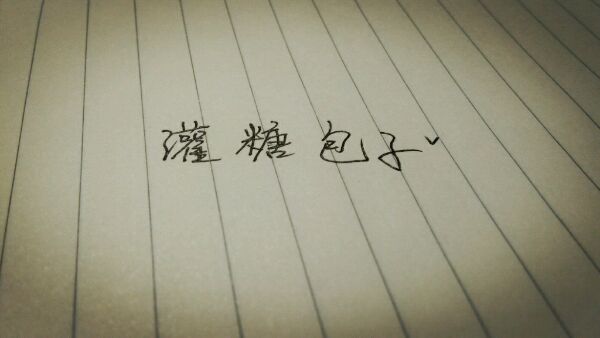 灌糖包子